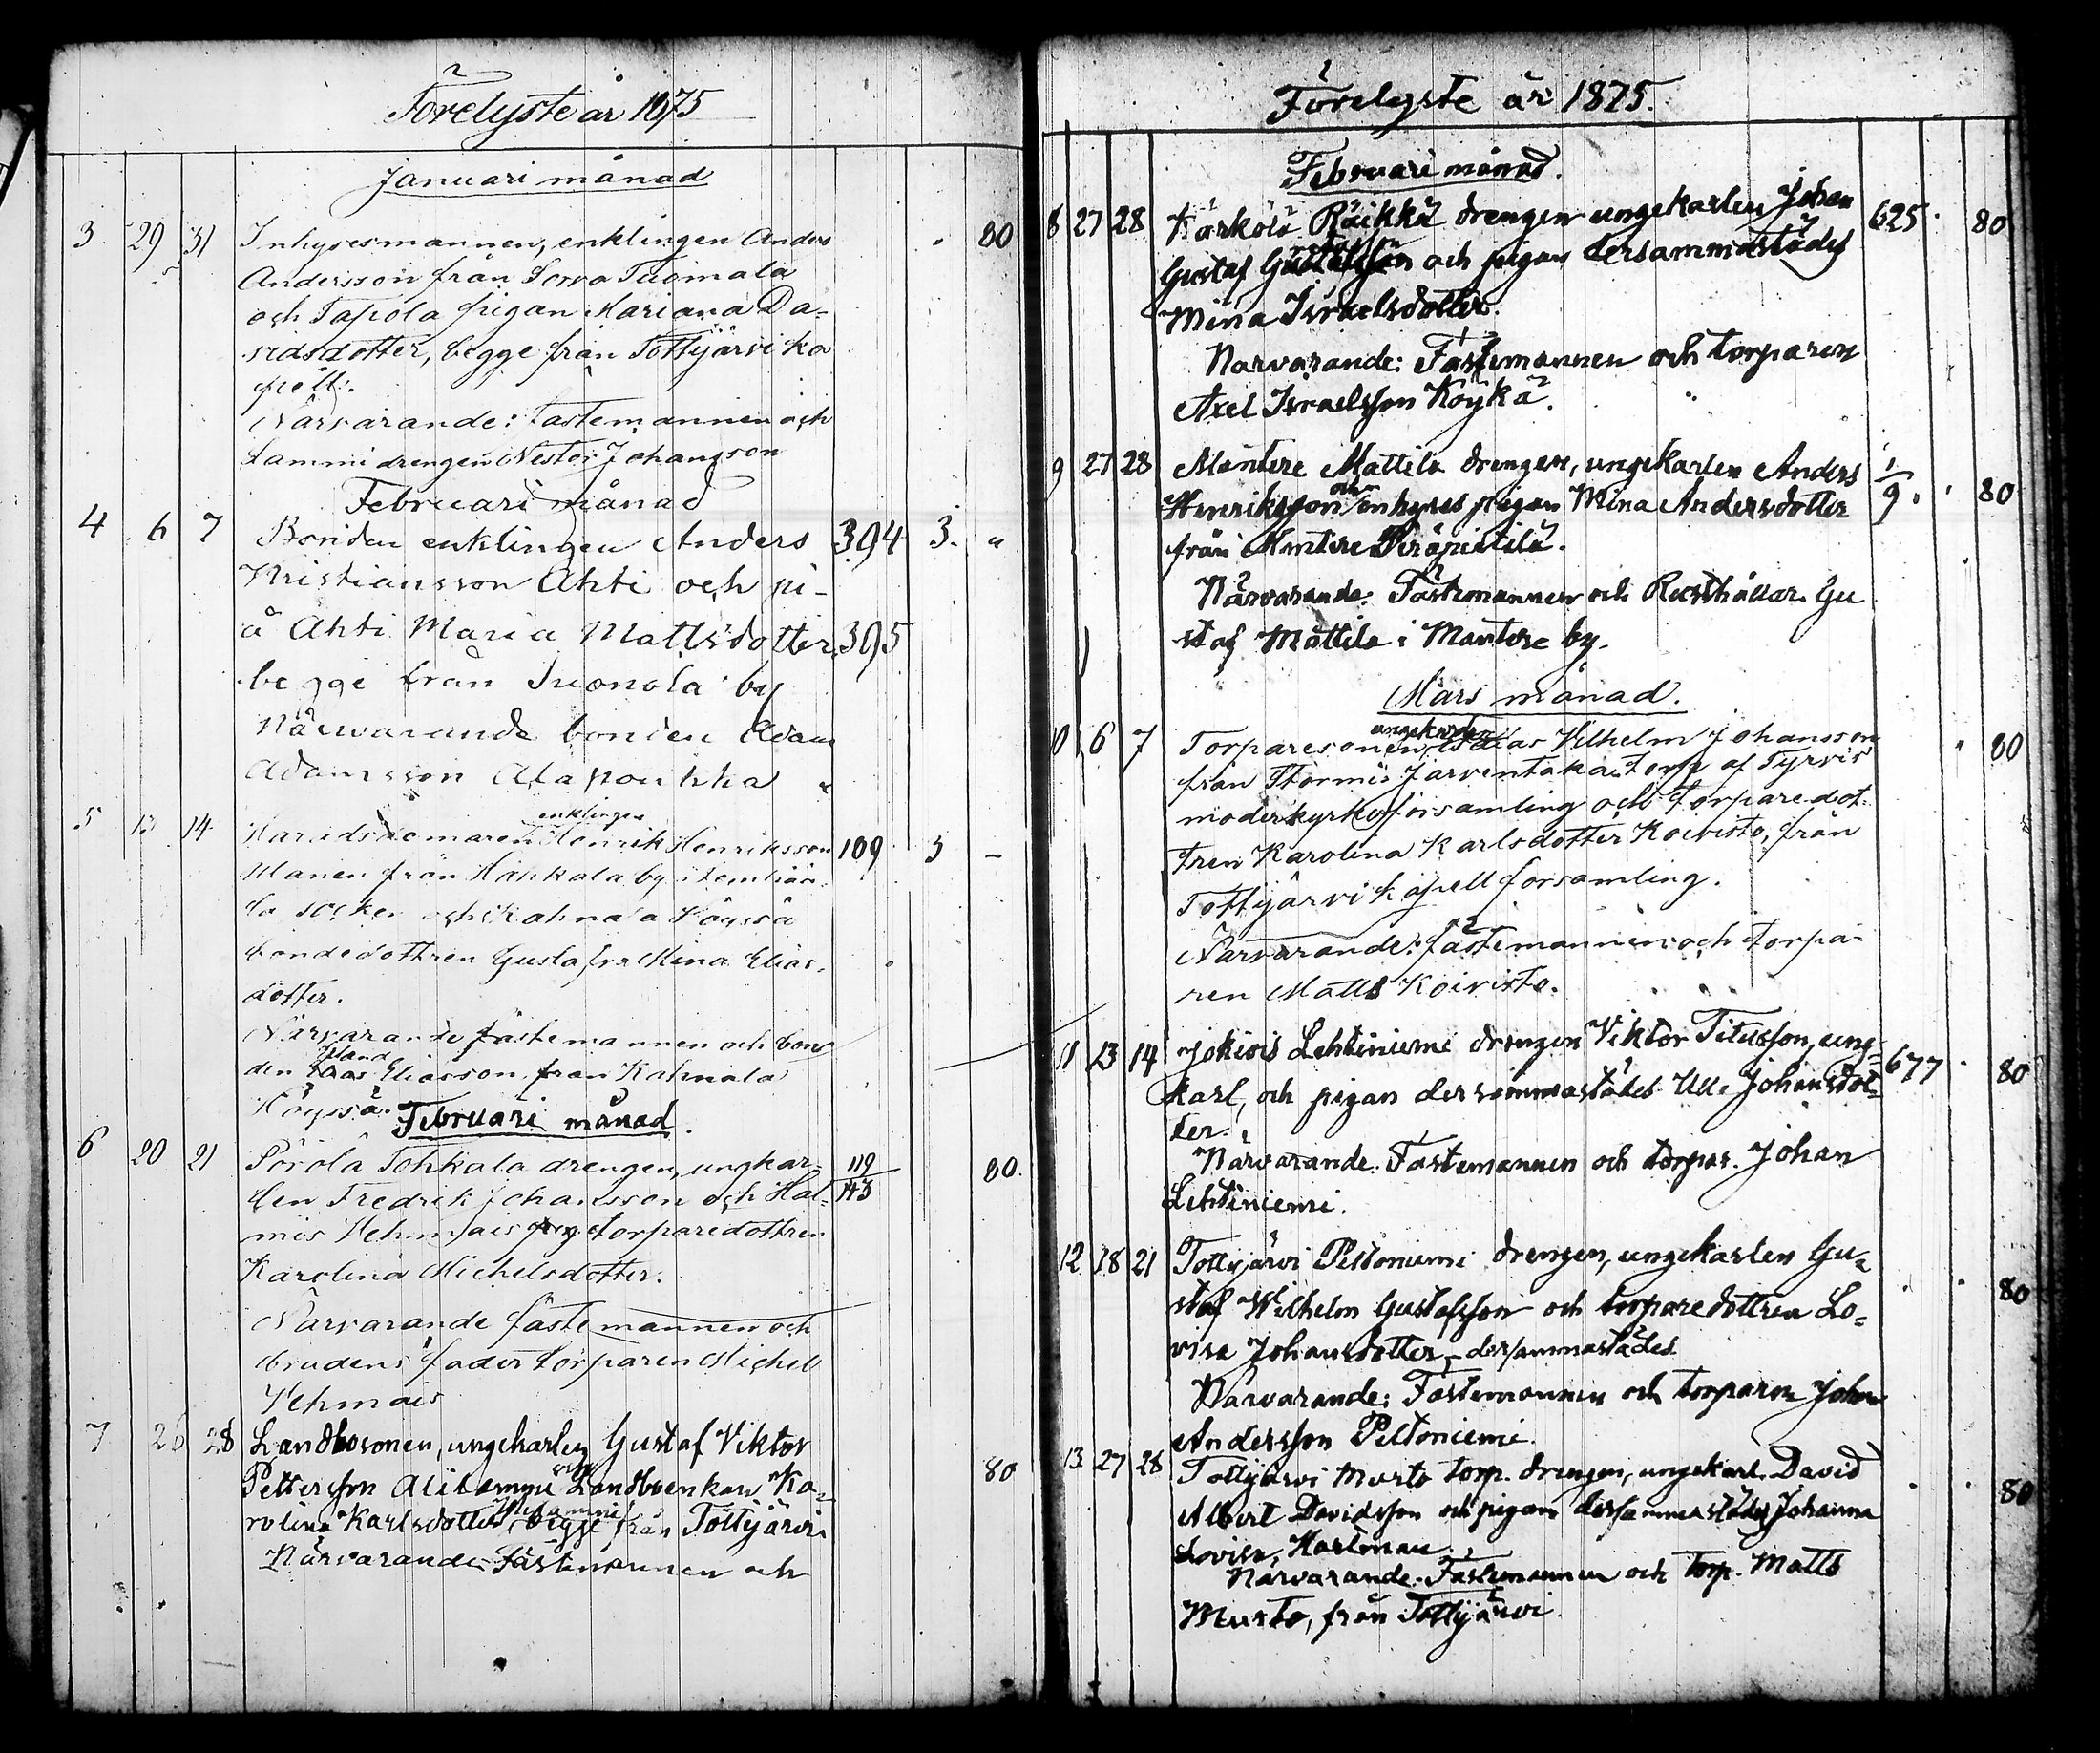 Förelyste år 1875
Januari månad
3 29 31 Inhysesmannen, enklingen Anders 80
Andersson från Sorva Tuomala
och Tapola pigan Mariana Da-
vidsdotter, begge från Tottijärvi ka
pell.
Närvarande: fästemannen och
Lammi drengen Nestor Johansson
Februari månad
4 6 7 Bonden enklingen Anders 394 3. "
Kristiansson Ahti och pi-
å Ahti Maria Mattsdotter 395
begge från Suonola by
Närvarande bonden Adam
Adamsson Alapouhha
enklingen
5 13 14 Häradsdomaren Henrik Henriksson 109 3 –
Manen från Hahkala by i
socken och Kahnala Höyssä
bondedottren Gustafva Mina Elias
dotter.
Närvarande fästemannen och bon
den Eliasson från Kahnala
Höyssä. Februari månad.
6 20 21 Pörölä Tohkala drengen, ungkar 119 80.
len Fredrik Johansson och Hal- 143
mis Vehmais torparedottren
Karolina Michelsdotter.
Närvarande fästemannen och
brudens fader torparen Michel
Vehmais
7 26 28 Landbosonen, ungekarlen Gustaf Viktor
Pettersson Alitammi och Landboenkan Ka- 80
rolina Karlsdotter begge från Tottijärvi
Närvarande: Fästemannen och
Förelyste år 1875.
Februari månad.
8 27 28 Kärkölä Räikkä drengen ungekarlen Johan 625 80
Gustaf och pigan dersammastädes
Mina Israelsdotter.
Närvarande: Fästemannen och torparen
Axel Israelsson Köykä.
9 27 28 Mantere Mattila drengen, ungekarlen Anders 1
Henriksson och inhyses pigan Mina Andersdotter 9 80
från Mantere Peräpietilä.
Närvarande: Fästemannen och Rusthållar. Gu
staf Mattila i Mantere by.
Mars månad.
ungekarlen
10 6 7 Torparesonen Vilhelm Johansson 80
från Stormis Järventaka torp af Tyrvis
moderkyrkoförsamling och torparedot-
tren Karolina Karlsdotter Koivisto, från
Tottijärvi kapell församling.
Närvarande: fästemannen och torpa-
ren Matts Koivisto.
11 13 14 Jokiois Lehtiniemi drengen Viktor Titusson, ung- 677 80
karl, och pigan dersammastädes Ulla Johansdot-
ter.
Närvarande: Fästemannen och torpar. Johan
Lehtiniemi.
12 18 21 Tottijärvi Peltoniemi drengen, ungekarlen Gu-
staf Wilhelm Gustafsson och torparedottren Lo- 80
visa Johansdotter, – dersammastädes
Närvarande: Fästemannen och torparen Johan
Andersson Peltoniemi.
13 27 28 Tottijärvi Murto torp. drengen, ungekarl. David 80
Albert Davidsson och pigan dersammastädes Johanna
Lovisa Hartman.
Närvarande: Fästemannen och torp. Matts
Murto, från Tottijärvi.